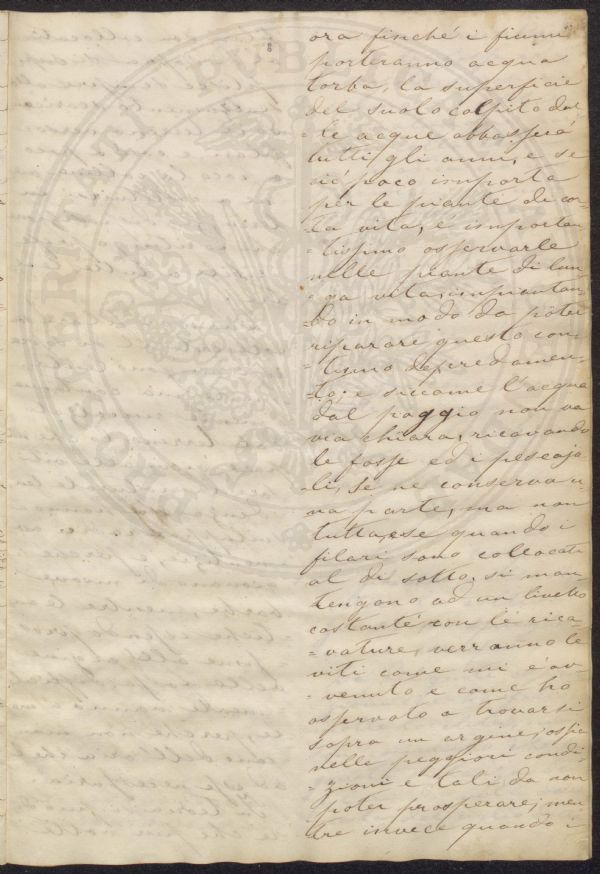 ora finché i fiumi
porteranno acqua
torba, la superficie
del suolo colpito dal
-le acque abbasserà
tutti gli anni, e se
ciò poco importa
per le piante di cor-
-ta vita, è importan
-tissimo osservarle
nelle piante di lun
-ga vita, impiantan-
-do in modo da poter
riparare questo con
-tinuo depredamen-
-to; e siccome l'acqua
dal poggio non va
via chiara, ricavando
le fosse ed i pescajo
-li, se ne conserva u-
na parte, ma non
tutta, e se quando i
filari sono collocati
al di sotto, si man-
tengono ad un livello
costante con le rica
-vature, verranno le
viti come mi è av-
-venuto e come ho
osservato a trovarsi
sopra un argine, ossia
nelle peggiori condi-
-zioni e tali da non
poter prosperare; men
-tre invece quando i